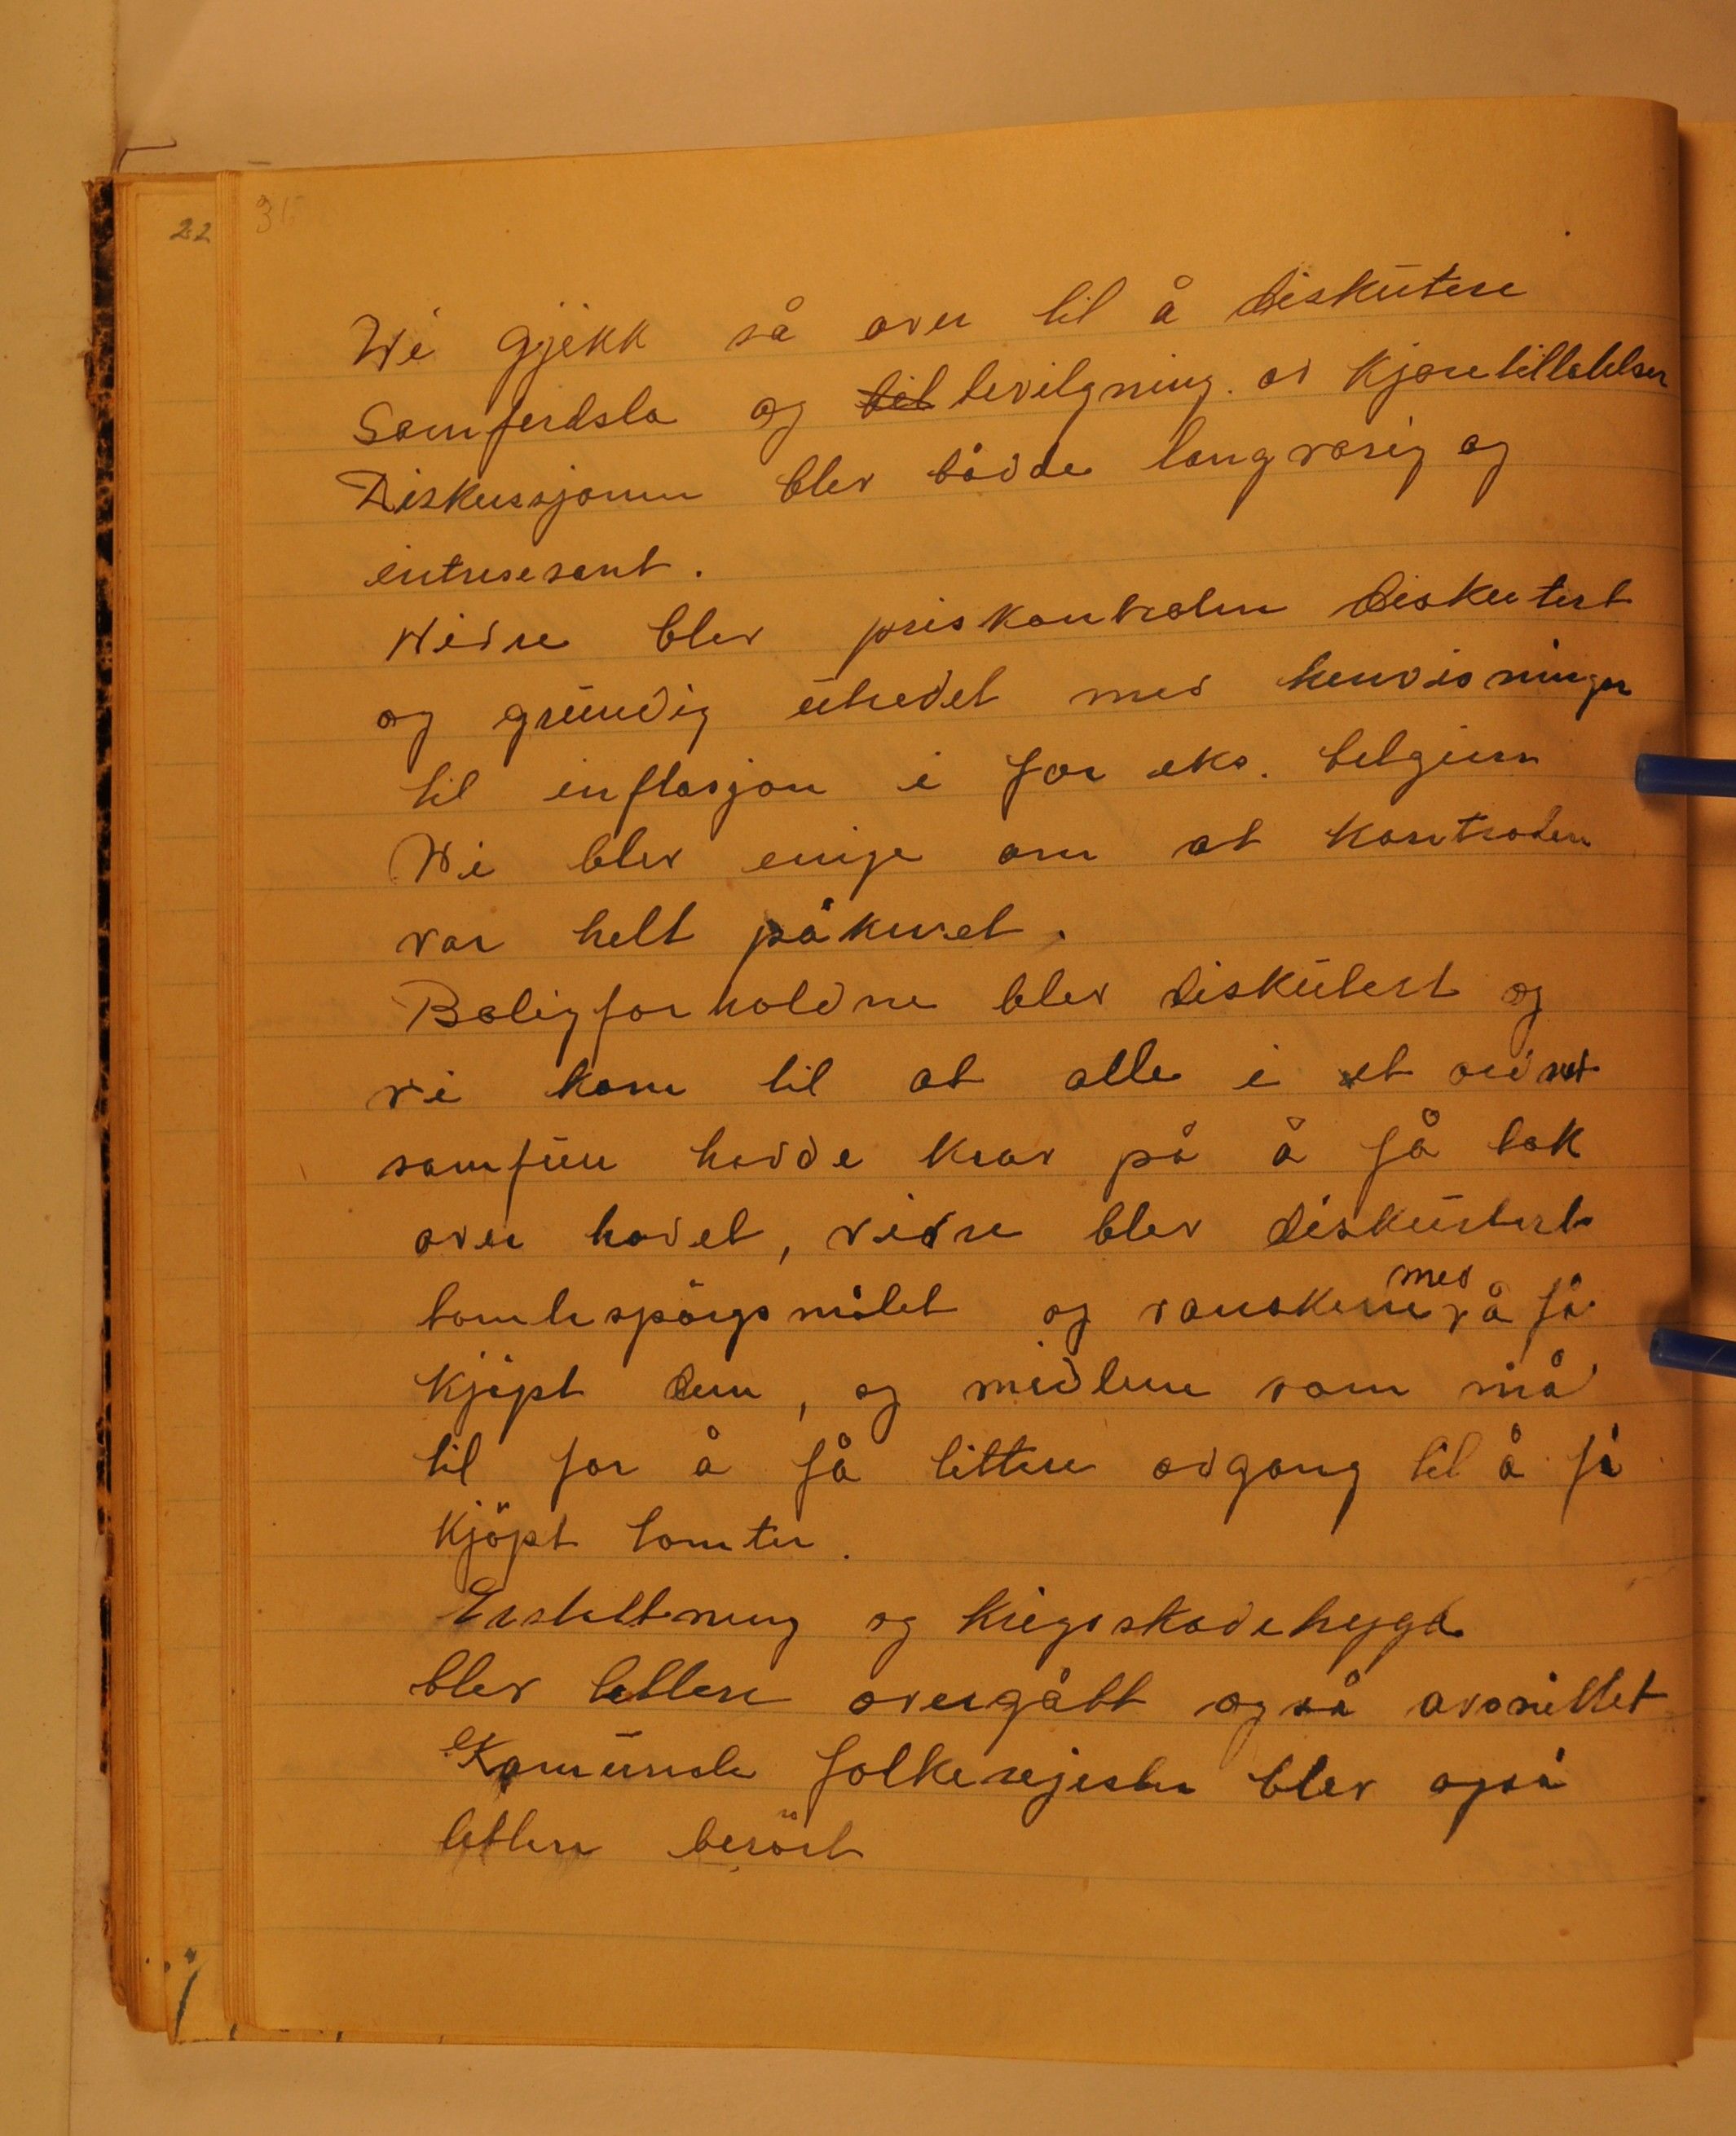 22
Wi gjekk så over til å diskütere
Samferdsla og til bevilgning. av kjøretillatelser
Diskussjonen blev bådde langvarig og
intresesant.
Widre blev priskontrolen diskutert
og gründig ütredet med henvisninger
til inflasjon i for eks. belgien
Wi blev enige om at kontrolen
var helt påkrevet.
Boligforholdne blev diskütert og
vi kom til at alle i et ordnet
samfün hadde krav på å få tak
over hodet, vidre blev diskütert
tomtespörgsmålet og vansken med å få
kjöpt dem, og midlene som må
til for å få littere adgang til å få
kjöpt tomter.
Erstattning og krigsskadetrygd
blev lettere overgått også avsnittet
Komünale folkerejester blev også
lettere berört